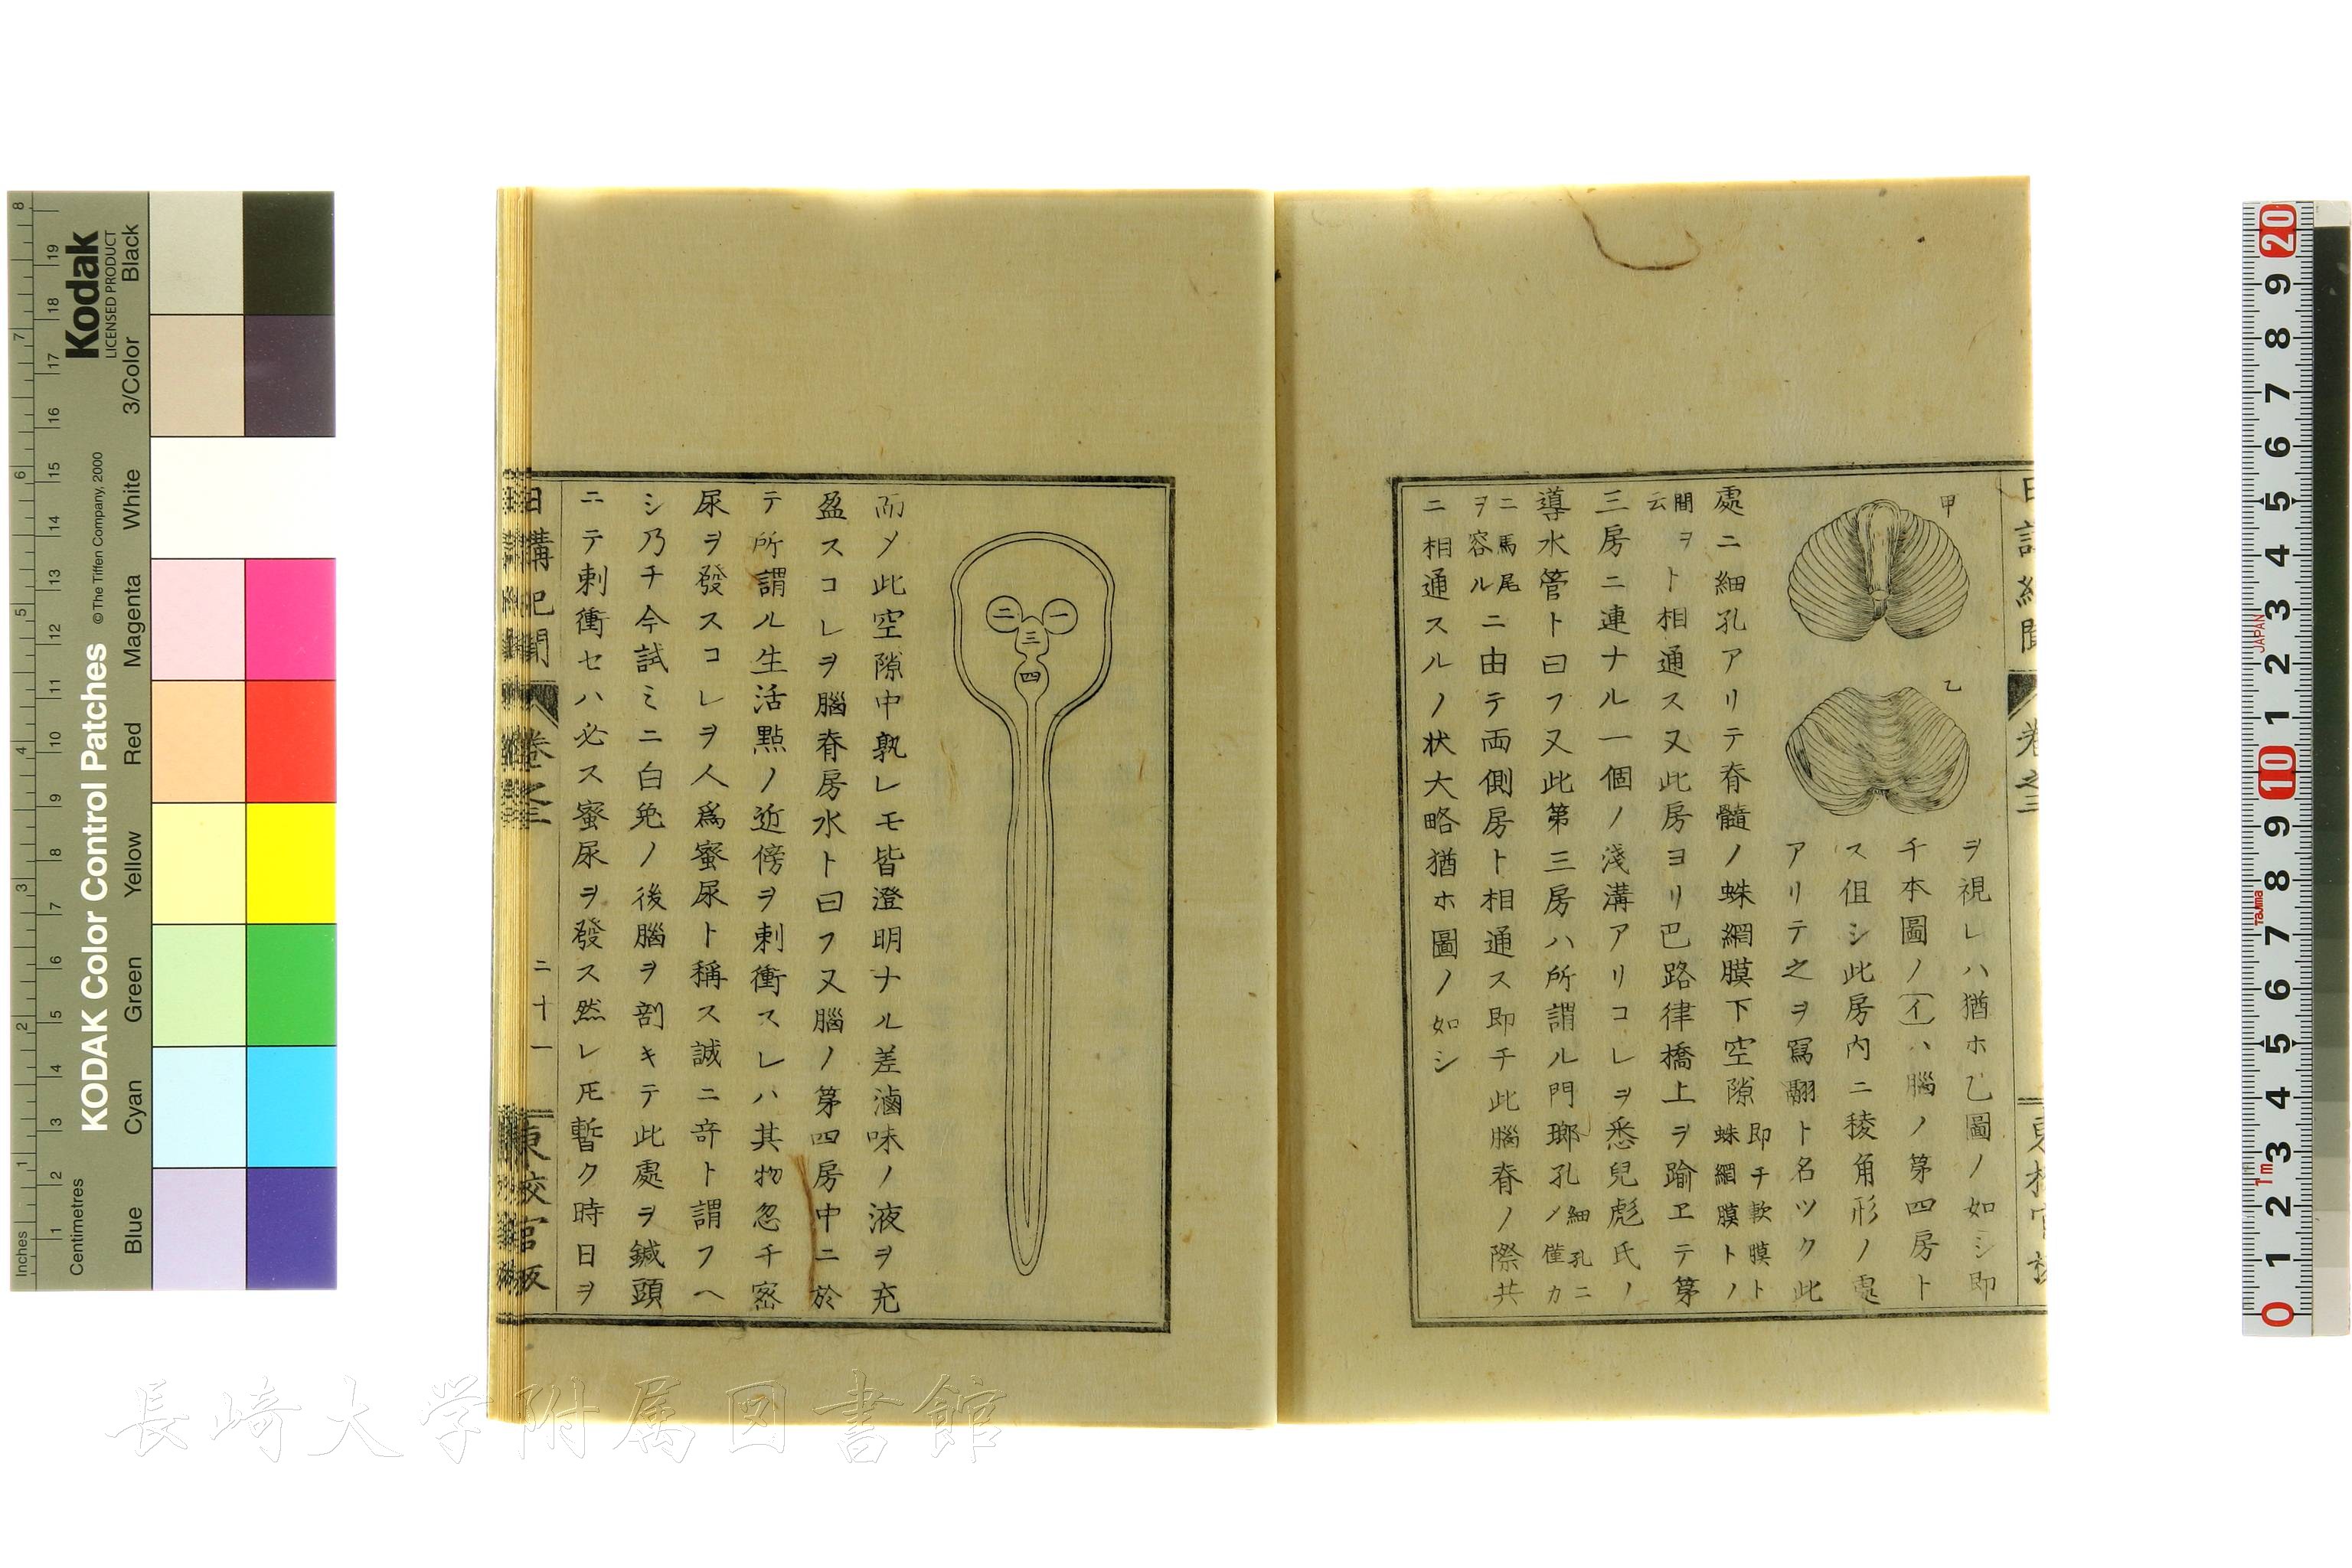 日講紀聞
卷之三
東校官板
甲
乙
ヲ視レハ猶ホ乙圖ノ如シ即
チ本圖ノ(イ)ハ腦ノ第四房ト
ス但シ此房内ニ稜角形ノ處
アリテ之ヲ冩翮ト名ツク此
處ニ細孔アリテ脊髓ノ蛛網膜下空隙即チ軟膜ト蛛網膜トノ
間ヲ云ヲト相通ス又此房ヨリ巴路律橋上ヲ踰ヱテ第
三房ニ連ナル一個ノ淺溝アリコレヲ悉兒彪氏ノ
導水管ト曰フ又此第三房ハ所謂ル門瑯孔ノ細孔ニ僅カ
ニ馬尾ヲ容ルニ由テ両側房ト相通ス即チ此腦脊ノ際共
ニ相通スルノ状大略猶ホ圖ノ如シ
一
二
三
四
而〆此空隙中孰レモ皆澄明ナル差滷味ノ液ヲ充
盈スコレヲ腦脊房水ト曰フ又腦ノ第四房中ニ於
テ所謂ル生活點ノ近傍ヲ刺衝スレハ其物忽チ密
尿ヲ發スコレヲ人爲蜜尿ト稱ス誠ニ竒ト謂フヘ
シ乃チ今試ミニ白兔ノ後腦ヲ剖キテ此處ヲ鍼頭
ニテ刺衝セハ必ス蜜尿ヲ發ス然レ𪜈暫ク時日ヲ
日講記聞
卷之三
二十一
東校官板
Kodak
LICENSED PRODUCT
KODAK Color Control Patches
© The Tiffen Company, 2000
Black
3/Color
White
Magenta
Red
Yellow
Green
Cyan
Blue
Inches
1 2 3 4 5 6 7 8
Centimetres
1 2 3 4 5 6 7 8 9 10 11 12 13 14 15 16 17 18 19
20 9 8 7 6 5 4 3 2 1 10 9 8 7 6 5 4 3 2 1 0
JAPAN
Tajima
1m
長崎大学附属図書館